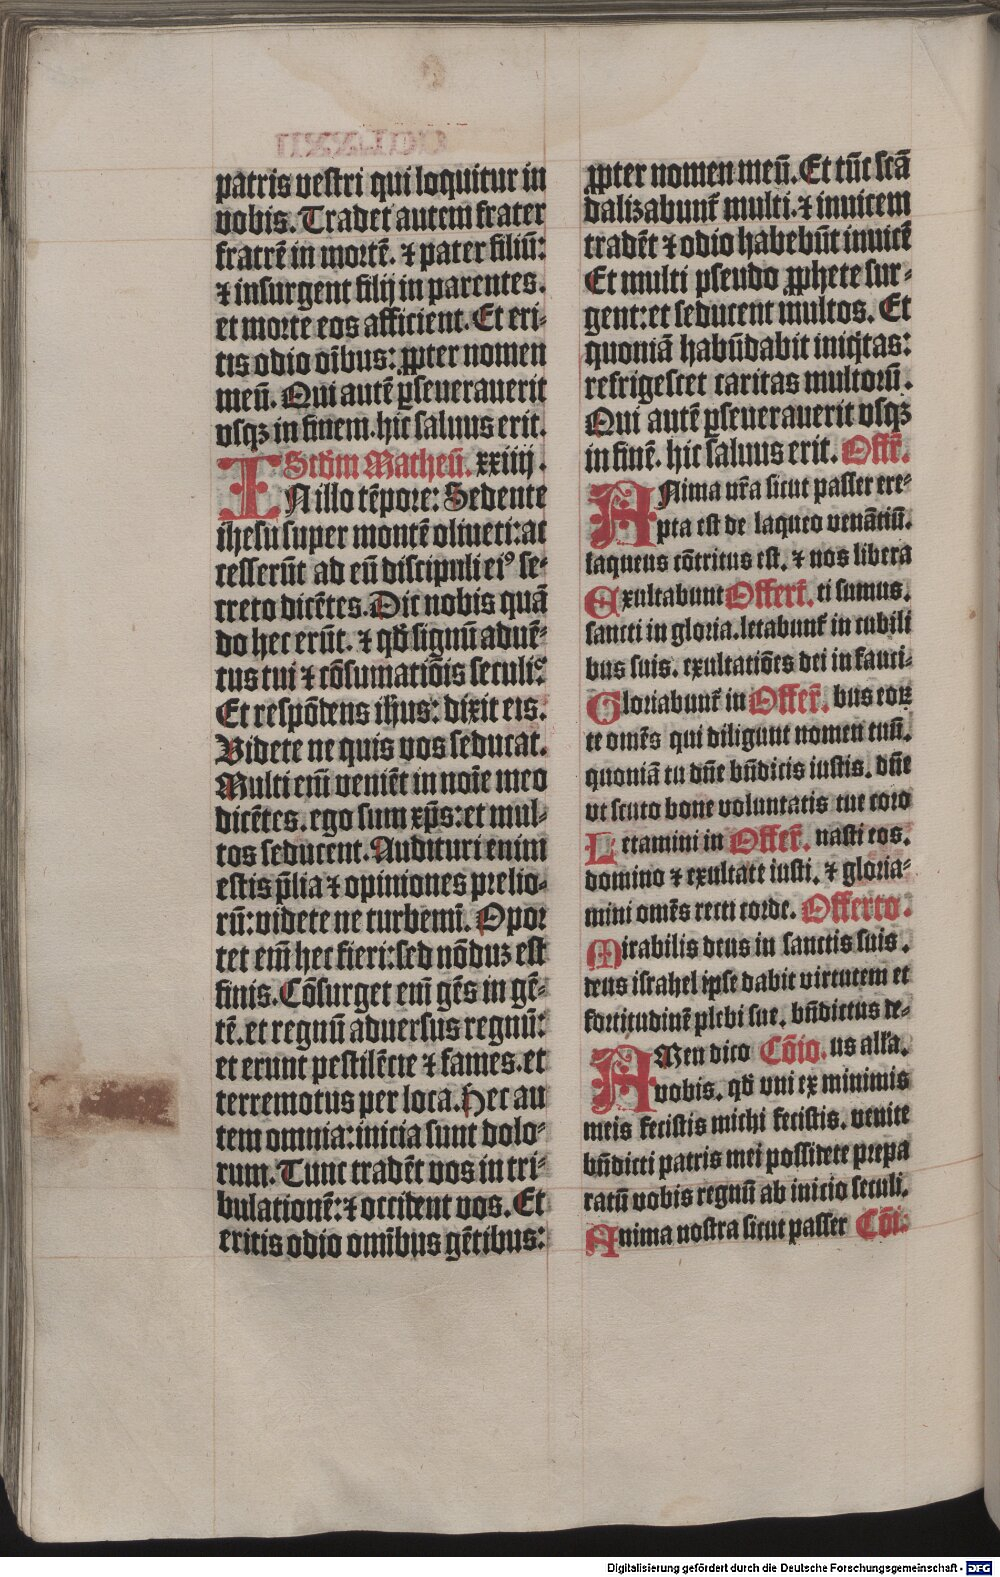 patris vestri qui loquitur in
vobis. Tradet autem frater
fratrē in mortē. ⁊ pater filiū:
⁊ insurgent filij in parentes.
et morte eos afficient. Et eri-
tis odio oībus: ꝓpter nomen
meū. Qui autē ꝑseuerauerit
vsqꝫ in finem. hic saluus erit.
Scd̄m Matheū. xxiiij.
IN illo tēpore: Sedente
ihesu super montē oliueti: ac
cesserūt ad eū discipuli ei⁹ se-
creto dicētes. Dic nobis quā
do hec erūt. ⁊ qd̄ signū aduē-
tus tui ⁊ cōsumatiōis seculi?
Et respōdens ihūs: dixit eis.
Videte ne quis vos seducat.
Multi em̄ veniēt in noīe meo
dicētes. ego sum xp̄s: et mul-
tos seducent. Audituri enim
estis p̄lia ⁊ opiniones prelio-
rū: videte ne turbemī. Opor
tet em̄ hec fieri: sed nōduꝫ est
finis. Cōsurget em̄ gēs in gē-
tē. et regnū aduersus regnū:
et erunt pestilētie ⁊ fames. et
terremotus per loca. Hec au
tem omnia: inicia sunt dolo-
rum. Tunc tradēt vos in tri-
bulationē: ⁊ occident vos. Et
eritis odio omībus gētibus:
ꝓpter nomen meū. Et tūc scā
dalizabunt̄ multi. ⁊ inuicem
tradēt ⁊ odio habebūt inuicē
Et multi pseudo ꝓphete sur-
gent: et seducent multos. Et
quoniā habūdabit iniq̇tas:
refrigescet caritas multorū.
Qui autē ꝑseuerauerit vsqꝫ
in finē. hic saluus erit. Off̄.
ANima nr̄a sicut passer ere-
pta est de laqueo venātiū.
laqueus cōtritus est. ⁊ nos libera
Exultabunt Offert̄. ti sumus.
sancti in gloria. letabunt̄ in cubili
bus suis. exultatiōes dei in fauci-
Gloriabunt̄ in Offer̄. bus eoꝝ
te omēs qui diligunt nomen tuū.
quoniā tu dn̄e bn̄dicis iustis. dn̄e
vt scuto bone voluntatis tue coro
Letamini in Offer̄. nasti eos.
domino ⁊ exultate iusti. ⁊ gloria-
mini omēs recti corde. Offerto.
Mirabilis deus in sanctis suis.
deus israhel ipse dabit virtutem et
fortitudinē plebi sue. bn̄dictus de-
AMen dico Cōio. us all'a.
vobis. qd̄ vni ex minimis
meis fecistis michi fecistis. venite
bn̄dicti patris mei possidete prepa
ratū vobis regnū ab inicio seculi.
Anima nostra sicut passer Cōi.
Digitalisierung gefördert durch die Deutsche Forschungsgemeinschaft - DFG